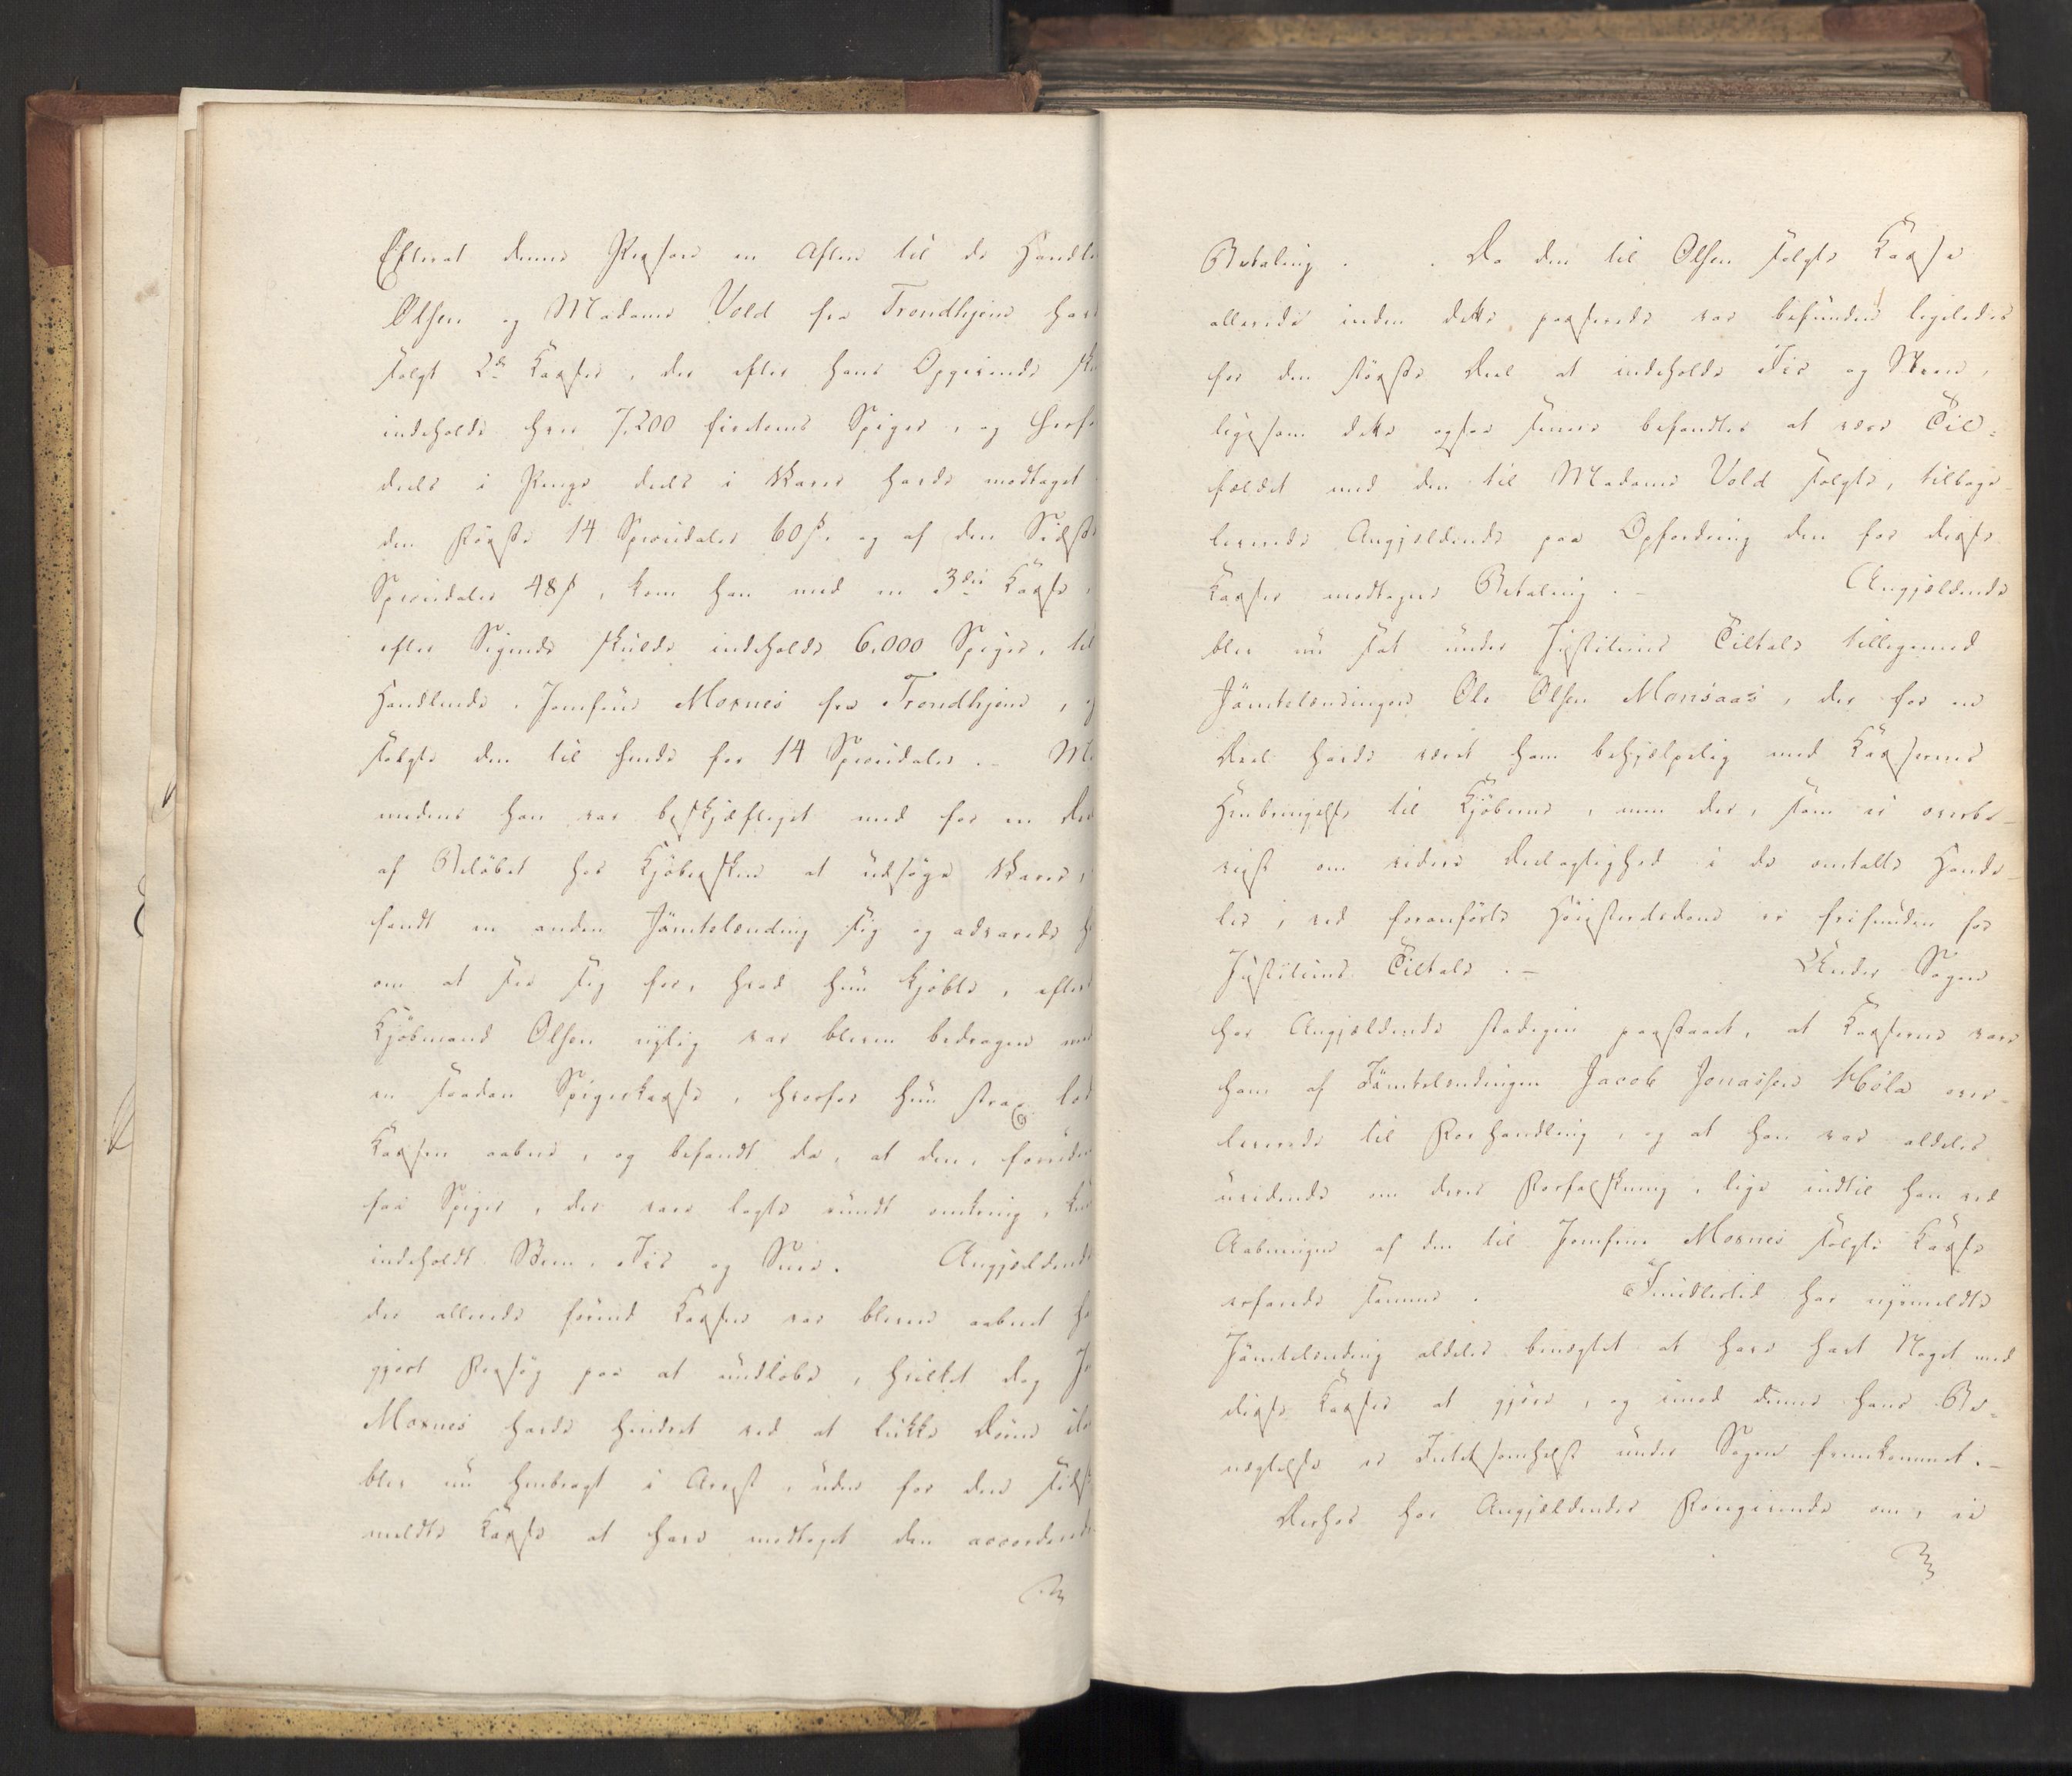 Efterat denne Person en Aften til de Handle
Olsen og Madame Vold fra Trondhjem hav
solgt 2de Kasser, der efter hans Opgivende sku
indeholde hver 7,200 fiirtoms Spiger, og herfo
deels i Penge deels i Varer havde modtaget
den Første 14 Speciedaler 60 s. og af den Sidste
Speciedaler 48 s, kom han med en 3die Kasse,
efter Sigende skulde indeholde 6,000 Spiger, til
Handlende Jomfrue Moxnes fra Trondhjem, og
solgte den til hende for 14 Speciedaler. – Me
medens han var beskjæftiget med for en Deel
af Beløbet hos Kjøbersken at udsøge Varer,
fandt en anden Jæmtelænding sig og advarede h
om at see sig for, hvad hun kjøbte, efter
Kjøbmand Olsen nylig var bleven bedragen med
en saadan Spigerkasse, hvorfor hun strax lod
Kassen aabne, og befandt da, at den, foruden
faa Spiger, der vare lagte rundt omkring, kun
indeholdt Steen, Iis og Snee. Angjældende
der allerede førend Kassen var bleven aabnet ha
gjort Forsøg paa at undløbe, hvilket dog Jo
Moxnes havde hindret ved at lukke Døren ile
blev nu henbragt i Arrest, uden for den sidst
meldte Kasse at have modtaget den accorderede
Betaling. . Da den til Olsen solgte Kasse
allerede inden dette passerede var befunden ligeledes
for den største Deel at indeholde Iis og Steen,
ligesom dette ogsaa senere befandtes at være Til=
fældet med den til Madame Vold solgte, tilbage-
leverede Angjældende paa Opfordring den for disse
Kasser modtagne Betaling. – Angjældende
blev nu sat under Justitiens Tiltale tilligemed
Jæmtelændingen Ole Olsen Monsaas, der for en
Deel havde været ham behjælpelig med Kassernes
Henbringelse til Kjøberne, men der, som ei overbe-
viist om videre Deelagtighed i de omtalte Hande-
ler, ved foranførte Høiesteretsdom er frifunden for
Justitiens Tiltale. – Under Sagen
har Angjældende stadigen paastaaet, at Kasserne vare
ham af Jæmtelændingen Jacob Jonassen Höla over-
leverede til Forhandling, og at han var aldeles
uvidende om deres Forfalskning, lige indtil han ved
Aabningen af den til Jomfrue Moxnes solgte Kasse
erfarede samme. Imidlertid har nysmeldte
Jæmtelænding aldeles benægtet at have havt Noget med
disse Kasser at gjøre, og imod denne hans Be-
nægtelse er Intetsomhelst under Sagen fremkommet. –
Derhos har Angjældendes Foregivende om, ei